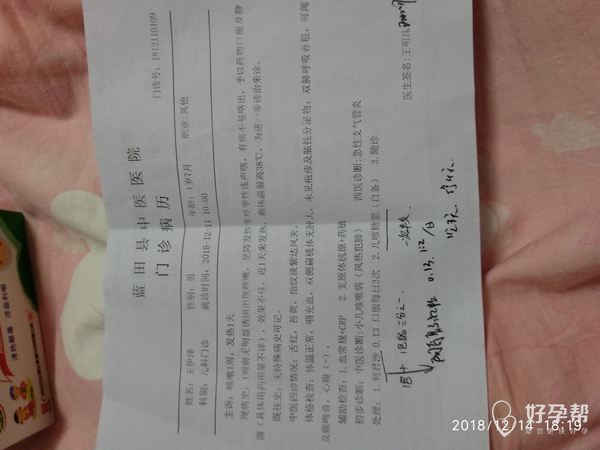 蓝田县中医医院
门诊病历
门诊号: 1812110109
姓名: 王伊泽 性别: 男 年龄: 1岁7月 职业: 其他
科别: 儿科门诊 就诊时间: 2018-12-11 10:00
主诉: 咳嗽1周, 发热1天
现病史: 1周前无明显诱因出现咳嗽, 呈阵发性非痉挛性连声咳, 有痰不易咯出, 予以药物口服及静
滴(具体用药用量不详), 效果不佳, 近1天来发热, 测体温最高38℃, 为进一步诊治来诊。
既往史: 无特殊病史可记。
中医四诊情况: 舌红, 苔黄, 指纹淡紫达风关。
体格检查: 体温正常, 咽充血, 双侧扁桃体无肿大, 未见疱疹及脓性分泌物; 双肺呼吸音粗, 可闻
及痰鸣音, 心腹(-)。
辅助检查: 1.血常规+CRP 2.支原体抗原+药敏
初步诊断: 中医诊断:小儿咳嗽病(风热犯肺) 西医诊断:急性支气管炎
处理: 1.利君沙 0.13 口服每日3次 2.儿咳糖浆(自备) 3.随诊
医生签名: 王明珠
一次
0.13
2018/12/14 18:19
好孕帮